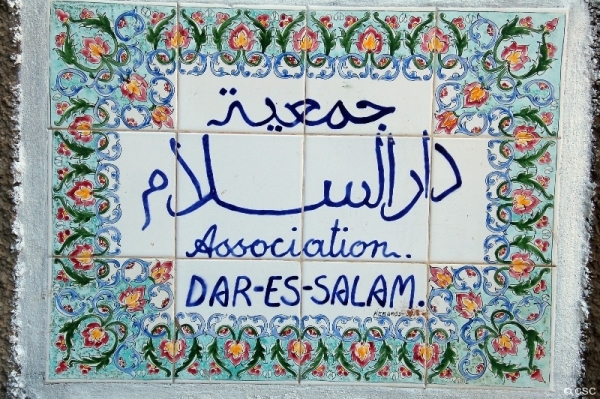 جمعية
دار السلام
Association.
DAR-ES-SALAM.
©CSC